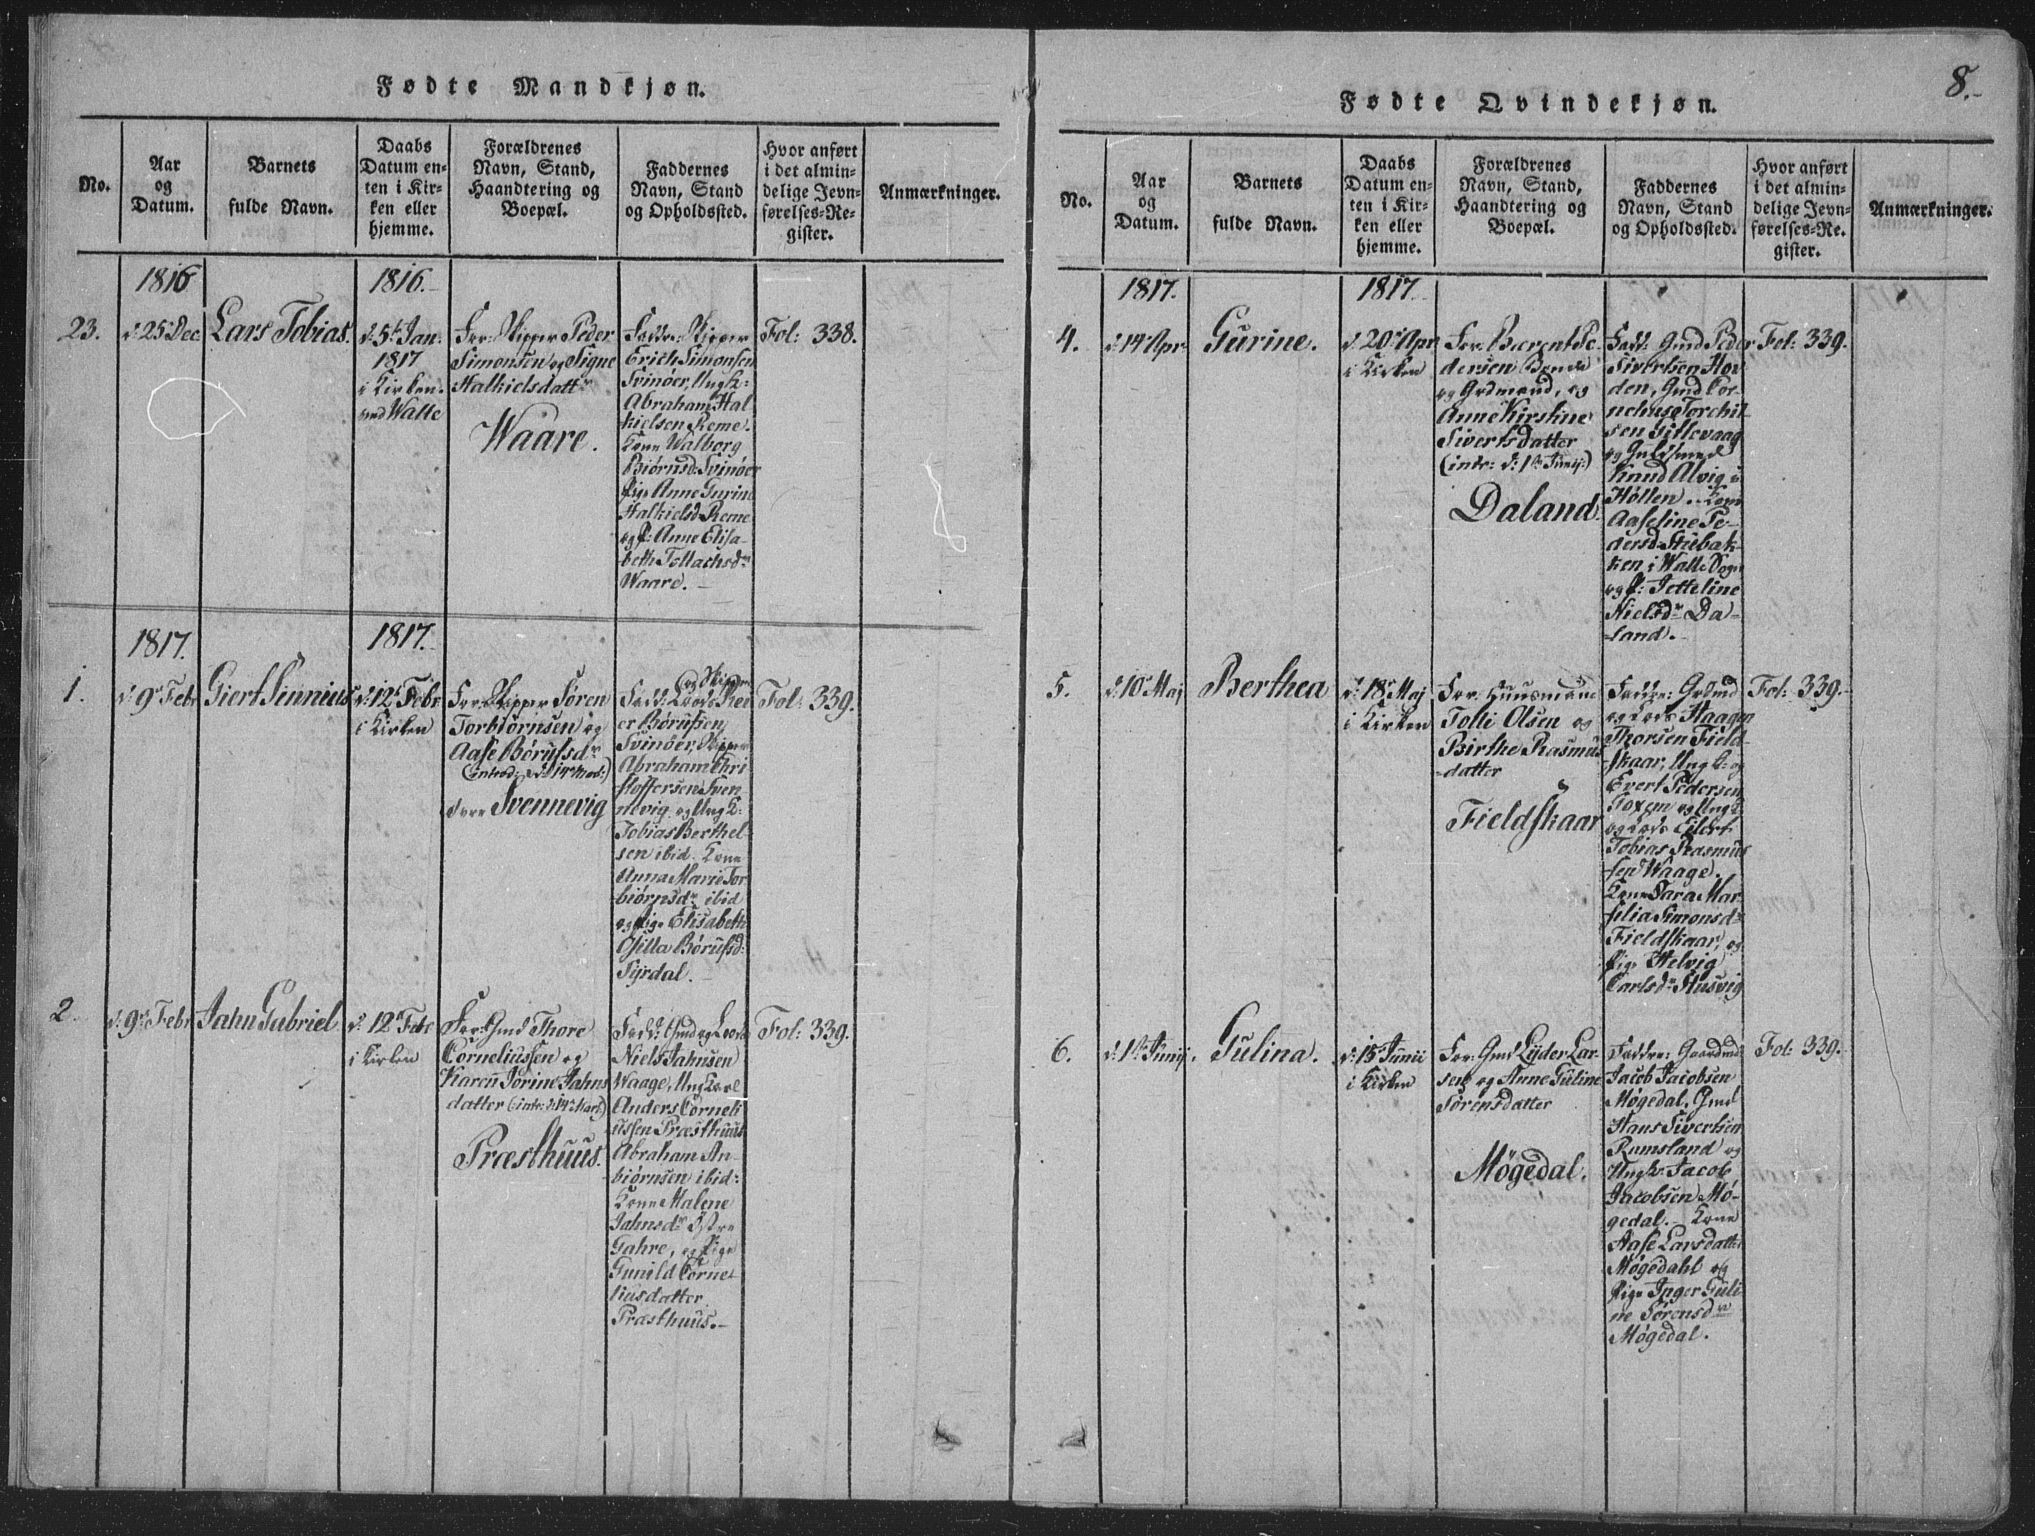 Fødte Mandkjøn.
No.
Aar
og
Datum.
Barnets
fulde Navn.
Daabs
Datum en-
ten i Kir-
ken eller
hjemme.
Forældrenes
Navn, Stand,
Haandtering og
Boepæl.
Faddernes
Navn, Stand
og Opholdssted.
Hvor anført
i det almin-
delige Jevn-
førelses-Re-
gister.
Anmærkninger.
23.
1816
d: 25 Dec
Lars Tobias.
1816.
d. 5t Jan:
1817
i Kirken
ved Walle
For: Skipper Peder
Simonsen og Signe
Halkielsdattr
Waare.
Faddr: Skipper
Erich Simonsen
Svinøer, Ungk:
Abraham Hal
kielsen Reme.
Kone Walborg
Biørnsd: Svinøer
Pige Anne Gurine
Halkielsd: Reme
og P: Anne Elisa-
beth Tollachsdr
Waare.
Fol: 338.
1.
1817.
d: 9r Febr
Giert Sinnius
1817.
d: 12t Febr
i Kirken
For: Skipper Søren
Torbiörnsen og
Aase Børufsdr
(introd: d: 14r Mart:)
Svennevig
Skipper
Fadd: Lods Rei
er Børufsen
Svinøer, Skipper
Abraham Chri
stoffersen Sven
nevig og Ung K:
Tobias Berthel-
sen ibid. Kone
Anna Marie Tor
biørnsdr ibid
og Pige Elisabeth
Børufsd:
Syrdal.
Fol: 339.
2.
d: 9r Febr
Jahn Gabriel
d: 12 Febr
i Kirken
For: Gmd Thore
Corneliussen og
Karen Jorine Jahns
datter (intr: d: 14r Mart)
Præsthuus.
Fadd: Gmd og Lods
Niels Jahnsen
Waage, Ung Karl
Anders Corneli
ussen Præsthuus
Abraham An-
biørnsen ibid:
Kone Malene
Jahnsdr Østre
Gahre, og Pige
Gunild Corne
liusdatter
Præsthuus.
Fol: 339.
8.
Fødte Qvindekjøn.
No.
Aar
og
Datum.
Barnets
fulde Navn.
Daabs
Datum en-
ten i Kir-
ken eller
hjemme.
Forældrenes
Navn, Stand,
Haandtering og
Boepæl.
Faddernes
Navn, Stand
og Opholdssted.
Hvor anført
i det almin-
delige Jevn-
førelses-Re-
gister.
Anmærkninger.
4.
1817.
d: 14r Apr
Gurine.
1817.
d 20r Apr
i Kirken
For: Berent Pe-
dersen Bonde
og Grdmand, og
Anne Kirstine
Sivertsdatter
(intr: d: 1ste Junij:)
Daland.
Fadd: Gmd Peder
Sivertsen Hov
den, Gmd Cor-
nelius Torchil
sen Gillevaag
og Guldsmed
Knud Alvig i
Holten. Kone
Aaseline Pe-
dersd: Stubak-
ken i Walle Sogn
og P: Jetteline
Nielsdr Da-
land.
Fol: 339.
5.
d: 10r Maj
Berthea
d: 18r Maj
i Kirken
For: Huusmand
Tolli Olsen og
Birthe Rasmus
-datter
Fieldskaar
Faddr: Grdmd
og Lods Haagen
Thorsen Field-
skaar, Ung K: og
Evert Pedersen
og Ung K
og Lods Eilert
Tobias Rasmus
sen Waage.
Kone Sara Mar
selia Simonsdr
Fieldskaar, og
Pige Helvig
Carlsdr Husvig
Fol: 339.
6.
d: 1ste Junij.
Gulina.
d: 15r Junii
i Kirken
For: Gmd Lyder Lar-
sen og Anne Guline
Sørensdatter
Møgedal.
Faddre: Gaardmd
Jacob Jacobsen
Møgedal, Gmd
Hans Sivertsen
Ramsland og
Ungk: Jacob
Jacobsen Mø-
gedal. Kone
Aase Larsdatter
Møgedahl og
Pige Inger Guli
ne Sørensdr
Møgedal.
Fol: 339.